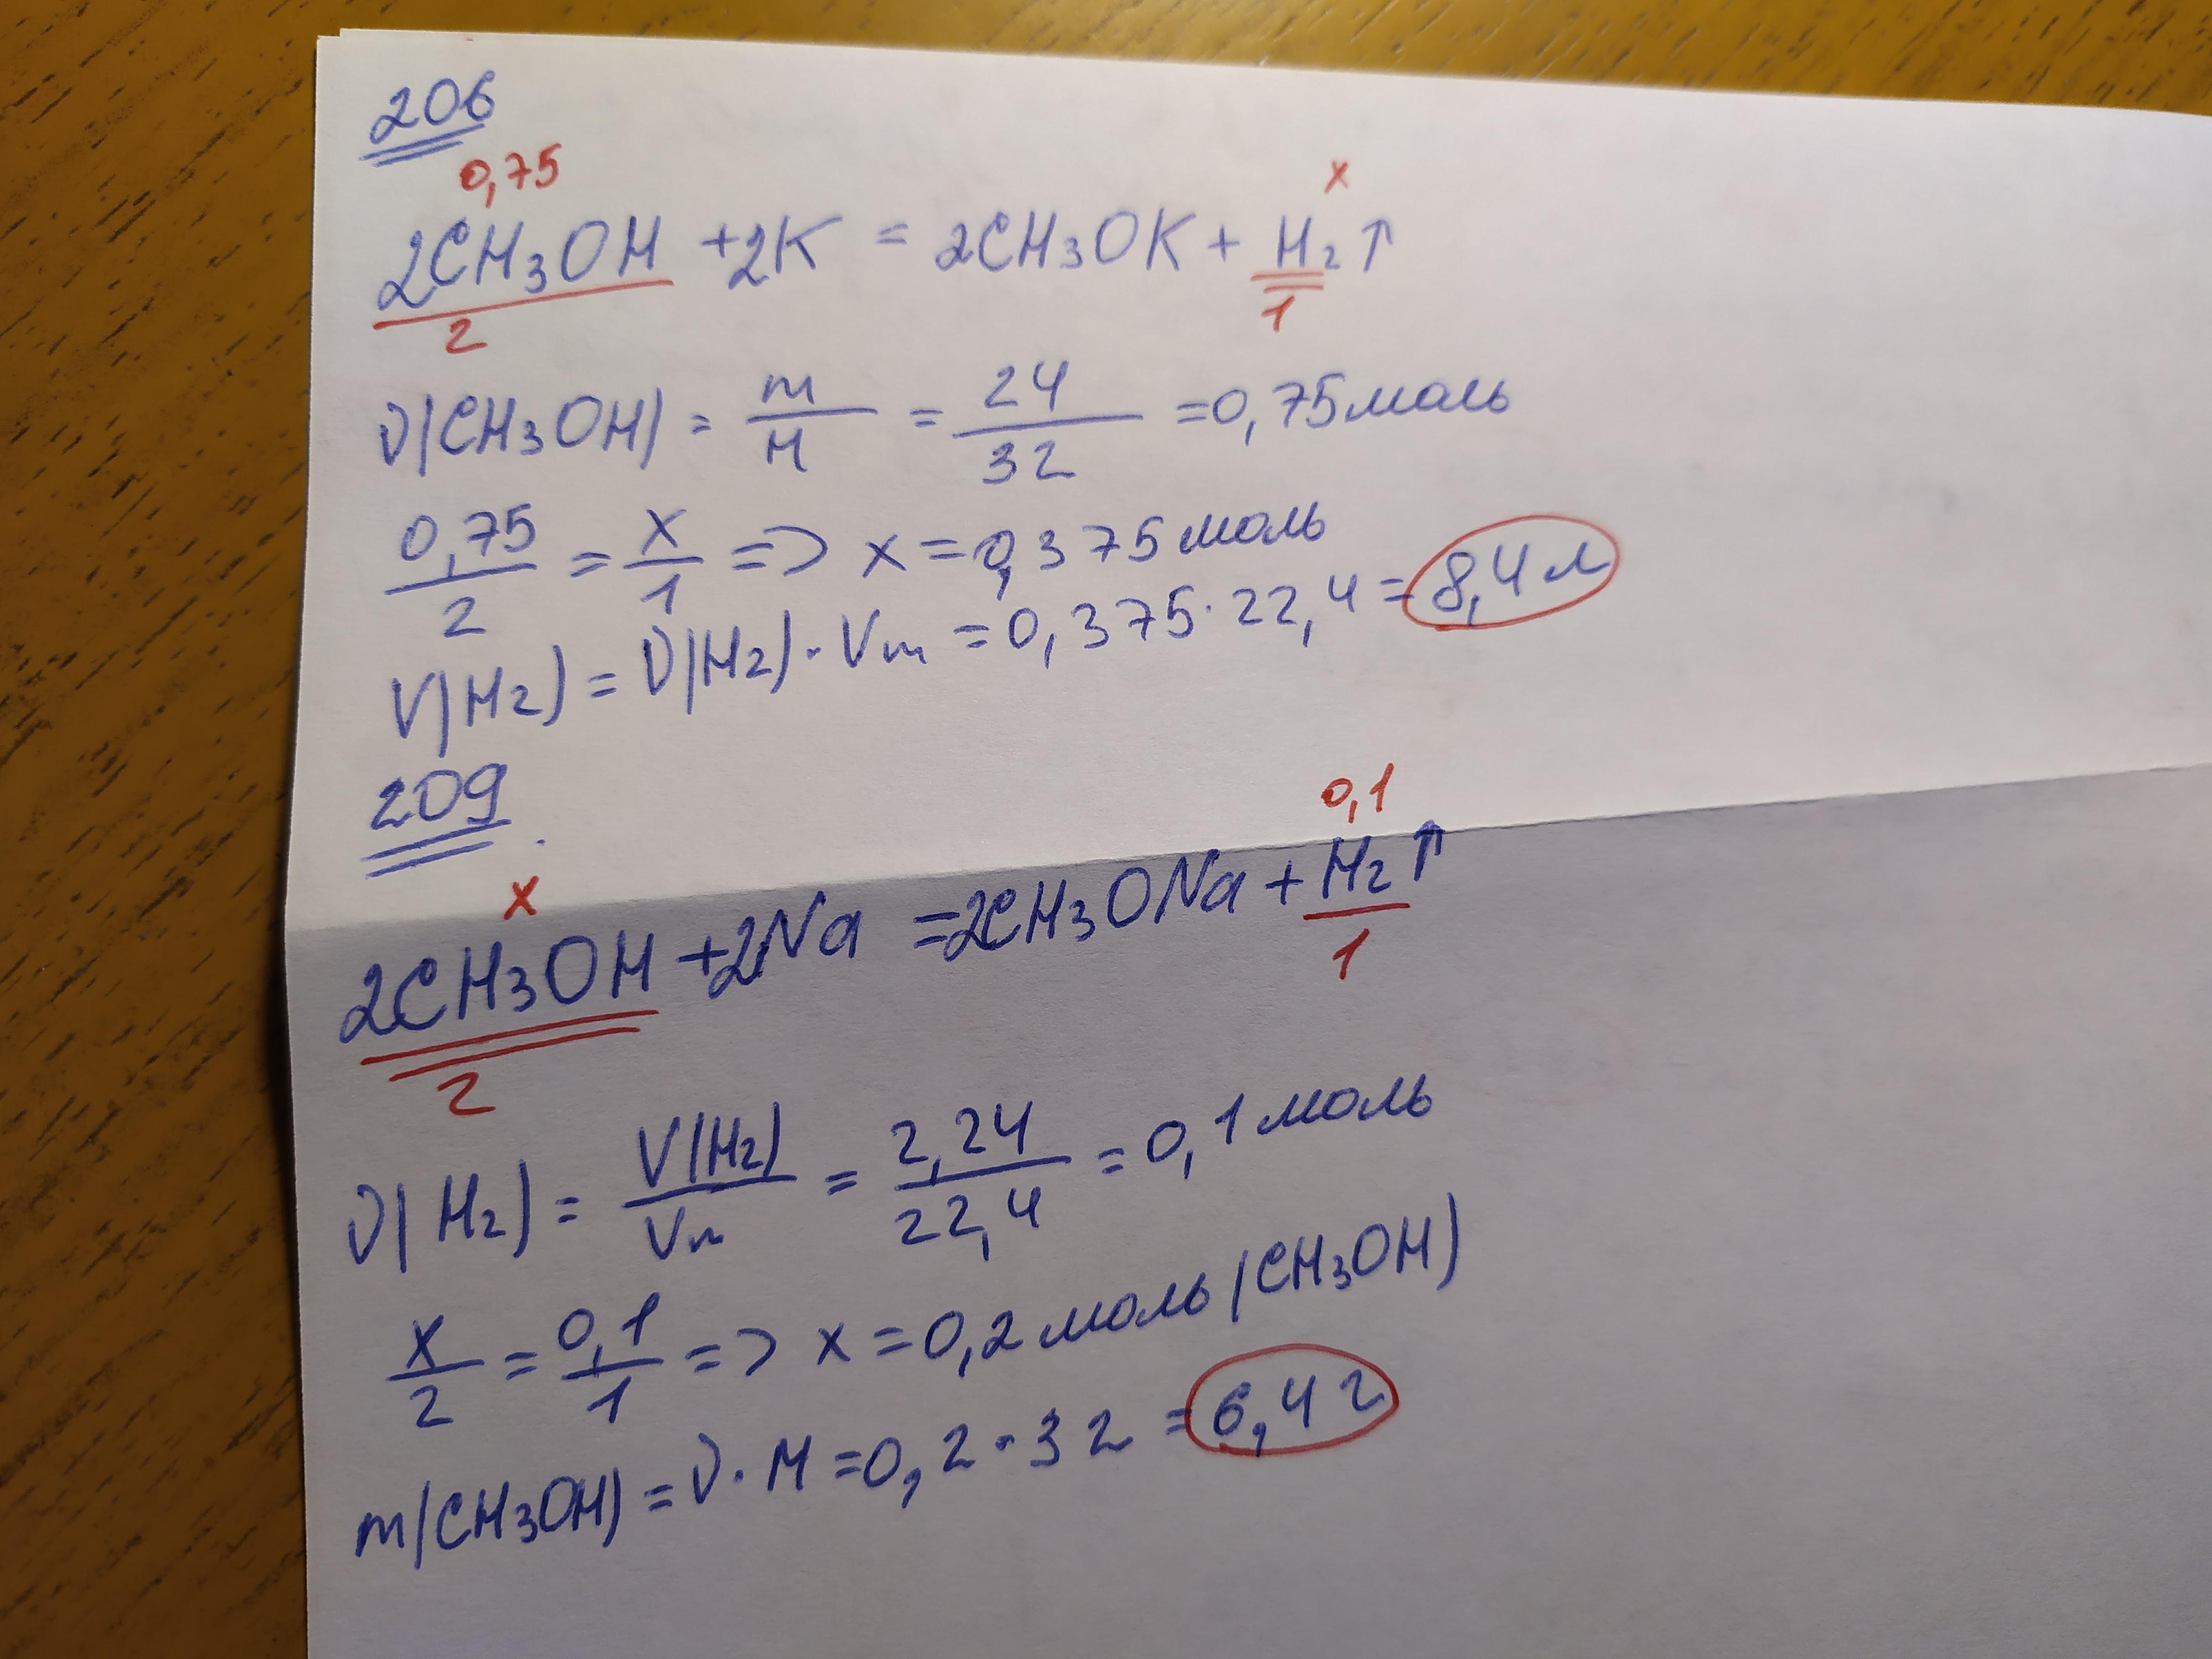 206
0,75 x
2CH₃OH + 2K = 2CH₃OK + H₂↑
2 1
ν(CH₃OH) = m/M = 24/32 = 0,75 моль
0,75/2 = x/1 => x = 0,375 моль
V(H₂) = ν(H₂) · Vm = 0,375 · 22,4 = 8,4 л
209
x 0,1
2CH₃OH + 2Na = 2CH₃ONa + H₂↑
2 1
ν(H₂) = V(H₂)/Vm = 2,24/22,4 = 0,1 моль
x/2 = 0,1/1 => x = 0,2 моль (CH₃OH)
m(CH₃OH) = ν · M = 0,2 · 32 = 6,4 г